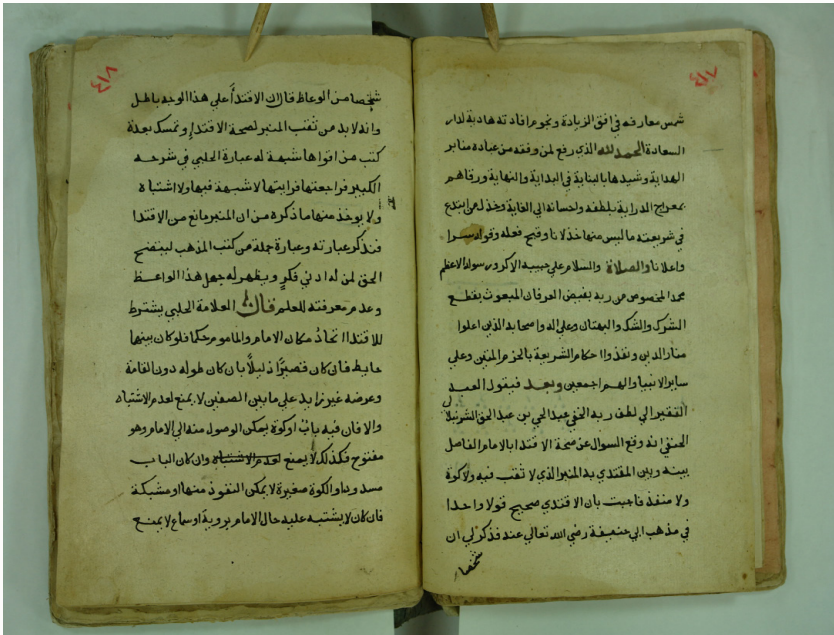 ٤١٧
شمس معارفه في افق الزيادة ونجوم افادته هادية لدار
السعادة الحمد لله الذي رفع لمن وفقه من عباده منابر
الهداية وشيدها بالبناية في البداية والنهاية ورقاهم
بمعراج الدراية بلطفه واحسانه الي الغاية وخذل من ابتدع
في شريعته ما ليس منها خذلانا وقبح فعله وقوله سرا
واعلانا والصلاة والسلام علي حبيبه الاكرم رسوله الاعظم
محمد المخصوص من ربه بفيض العرفان المبعوث بقطع
الشرك والشك والبهتان وعلي اله واصحابه الذين اعلوا
منار الدين ونفذوا احكام الشريعة بالحزم المتين وعلي
ساير الانبيا والهم اجمعين وبعد فيقول العبد
الفقير الي لطف ربه الخفي عبد الحي بن عبد الحق الشرنبلالي
الحنفي انه وقع السوال عن صحة الاقتدا بالامام الفاصل
بينه وبين المقتدي به المنبر الذي لا ثقب فيه ولا كوة
ولا منفذ فاجبت بان الاقتدي صحيح قولا واحدا
في مذهب ابي حنيفة رضي الله تعالي عنه فذكر لي ان
شخصا
٤١٨
شخصا من الوعاظ قال ان الاقتدأ علي هذا الوجه باطل
وانه لا بد من ثقب المنبر لصحة الاقتدا وتمسك بعدة
كتب من اقواها شبهة له عبارة الحلبي في شرحه
الكبير فراجعتها فرايتها لا شبهة فيها ولا اشتباه
ولا يوخذ منها ما ذكره من ان المنبر مانع من الاقتدا
فنذكر عبارته وعبارة جملة من كتب المذهب ليتضح
الحق لمن له ادني فكر ويظهر له جهل هذا الواعظ
وعدم معرفته للعلم قال العلامة الحلبي يشترط
للاقتدا اتحاد مكان الامام والماموم حكما فلو كان بينهما
حايط فان كان قصيرا ذليلا بان كان طوله دون القامة
وعرضه غير زايد علي ما بين الصفين لا يمنع لعدم الاشتباه
والا فان فيه باب او كوة يمكن الوصول منه الي الامام وهو
مفتوح فكذلك لا يمنع لعدم الاشتباه وان كان الباب
مسدودا والكوة صغيرة لا يمكن النفوذ منها او مشبكة
فان كان لا يشتبه عليه حال الامام بروية او سماع لا يمنع